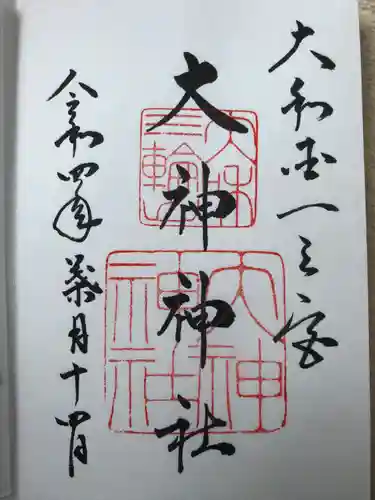 大和国一之宮
大神神社
令和四年葉月十四日
大和
三輪
大神
神社